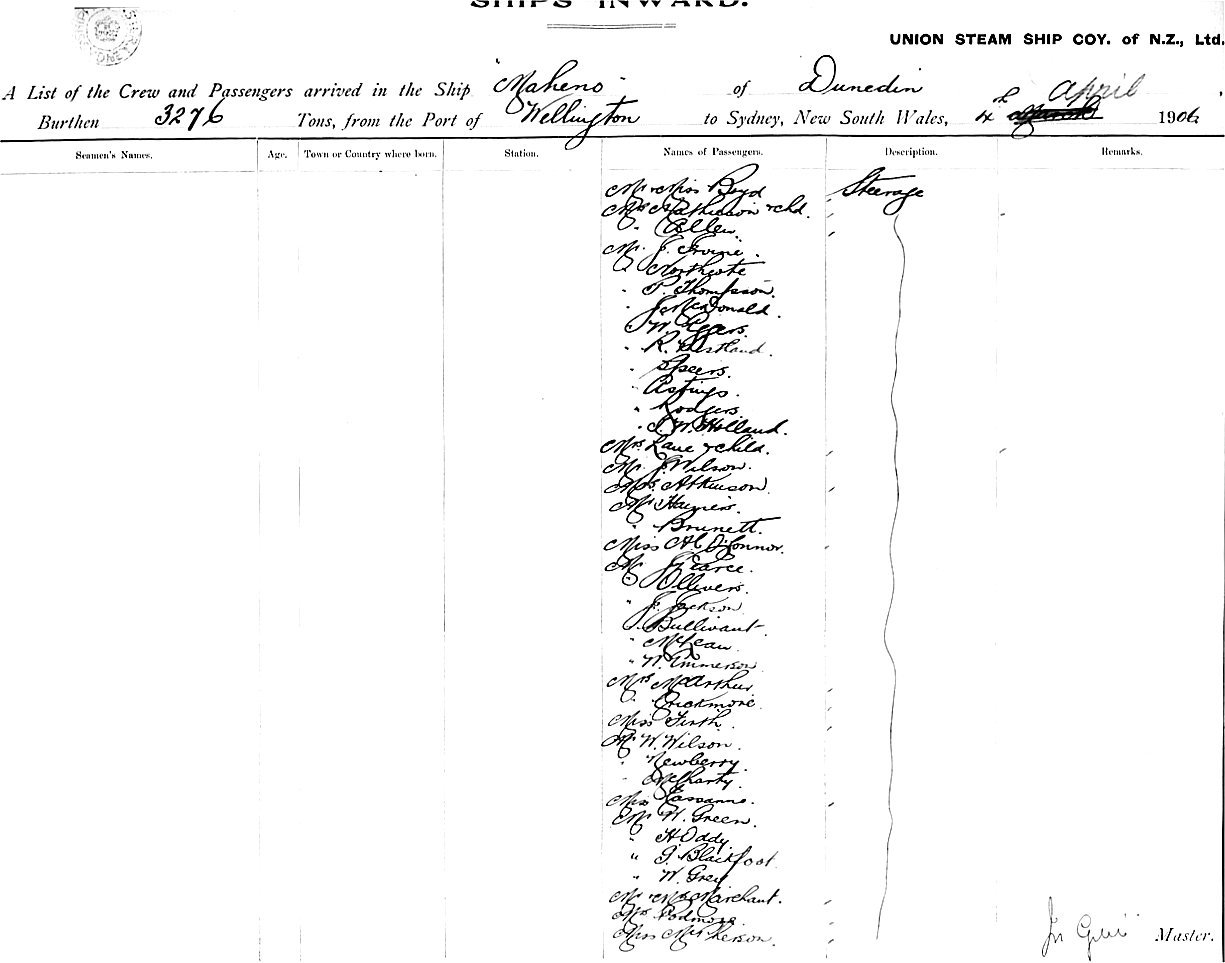 SHIPS INWARD.
UNION STEAM SHIP COY. of N.Z., Ltd.
A List of the Crew and Passengers arrived in the Ship "Maheno" of Dunedin
Burthen 3276 Tons, from the Port of Wellington to Sydney, New South Wales, 4 April 1906
Seamen's Names. Age. Town or Country where born. Station. Names of Passengers. Description. Remarks.
Mr & Miss Boyd Steerage
Mrs Mathieson & chd.
" Allen
Mr. J. Irvine.
" Northcote
" P. Thompson.
" J. McDonald.
" W. Eggers.
" R.
" Speers.
"
" Rodgers
" J. W. Holland.
Mrs Lane & child.
Mr. J. Wilson.
Mrs. Atkinson
Mr Haynes.
" Brunett.
Miss O'Connor.
Mr J. Pearce.
" Ollivers.
" J. Jackson
" Bullivant
" McLean
" W. Emmerson
Mrs McArthur
" Crickmore
Miss Firth
Mr W. Wilson.
" Newberry
" McCharty.
Miss
Mr W. Green.
" H Oddy
" J. Blackfoot
" W. Grey
Mr & Mrs Marchant.
Mrs Podmore
Miss McPherson.
Master.